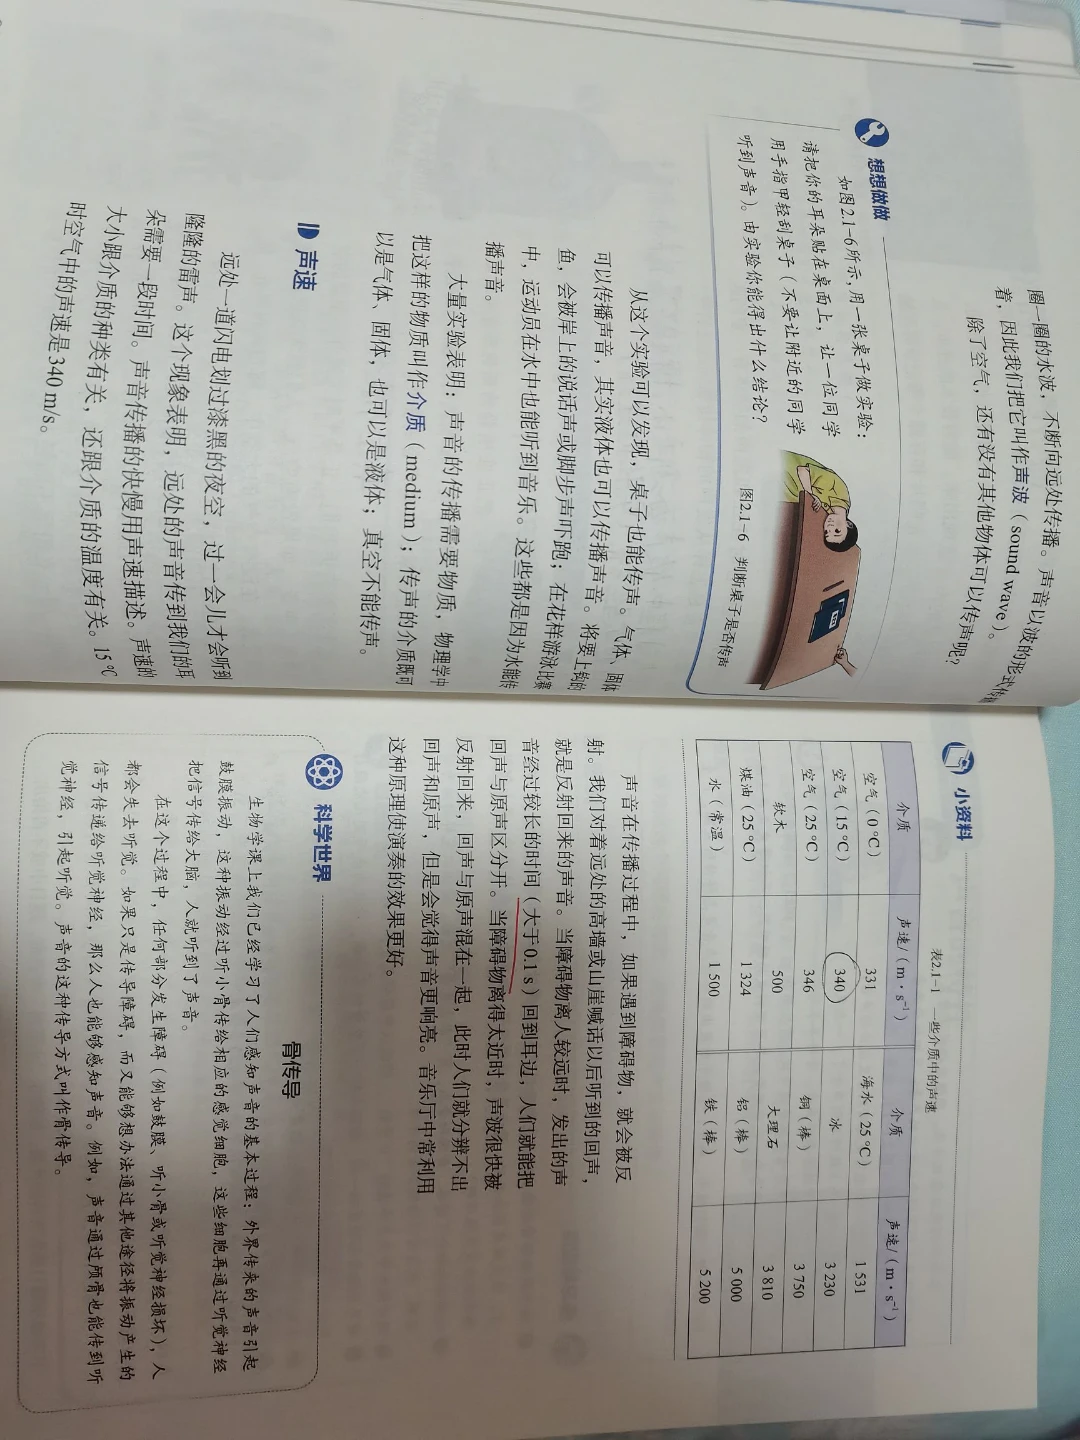 圈一圈的水波，不断向远处传播。声音以波的形式传播
着，因此我们把它叫作声波（sound wave）。
除了空气，还有没有其他物体可以传声呢？
想想做做
如图2.1-6所示，用一张桌子做实验：
请把你的耳朵贴在桌面上，让一位同学
用手指甲轻刮桌子（不要让附近的同学
听到声音）。由实验你能得出什么结论？
图2.1-6 判断桌子是否传声
从这个实验可以发现，桌子也能传声。气体、固体
可以传播声音，其实液体也可以传播声音。将要上钩的
鱼，会被岸上的说话声或脚步声吓跑；在花样游泳比赛
中，运动员在水中也能听到音乐。这些都是因为水能传
播声音。
大量实验表明：声音的传播需要物质，物理学中
把这样的物质叫作介质（medium）；传声的介质既可
以是气体、固体，也可以是液体；真空不能传声。
声速
远处一道闪电划过漆黑的夜空，过一会儿才会听到
隆隆的雷声。这个现象表明，远处的声音传到我们的耳
朵需要一段时间。声音传播的快慢用声速描述。声速的
大小跟介质的种类有关，还跟介质的温度有关。15 ℃
时空气中的声速是 340 m/s。
小资料
表2.1-1 一些介质中的声速
介质 声速/（m·s⁻¹） 介质 声速/（m·s⁻¹）
空气（0 ℃） 331 海水（25 ℃） 1 531
空气（15 ℃） 340 冰 3 230
空气（25 ℃） 346 铜（棒） 3 750
软木 500 大理石 3 810
煤油（25 ℃） 1 324 铝（棒） 5 000
水（常温） 1 500 铁（棒） 5 200
声音在传播过程中，如果遇到障碍物，就会被反
射。我们对着远处的高墙或山崖喊话以后听到的回声，
就是反射回来的声音。当障碍物离人较远时，发出的声
音经过较长的时间（大于0.1 s）回到耳边，人们就能把
回声与原声区分开。当障碍物离得太近时，声波很快被
反射回来，回声与原声混在一起，此时人们就分辨不出
回声和原声，但是会觉得声音更响亮。音乐厅中常利用
这种原理使演奏的效果更好。
科学世界
骨传导
生物学课上我们已经学习了人们感知声音的基本过程：外界传来的声音引起
鼓膜振动，这种振动经过听小骨传给相应的感觉细胞，这些细胞再通过听觉神经
把信号传给大脑，人就听到了声音。
在这个过程中，任何部分发生障碍（例如鼓膜、听小骨或听觉神经损坏），人
都会失去听觉。如果只是传导障碍，而又能够想办法通过其他途径将振动产生的
信号传递给听觉神经，那么人也能够感知声音。例如，声音通过颅骨也能传到听
觉神经，引起听觉。声音的这种传导方式叫作骨传导。